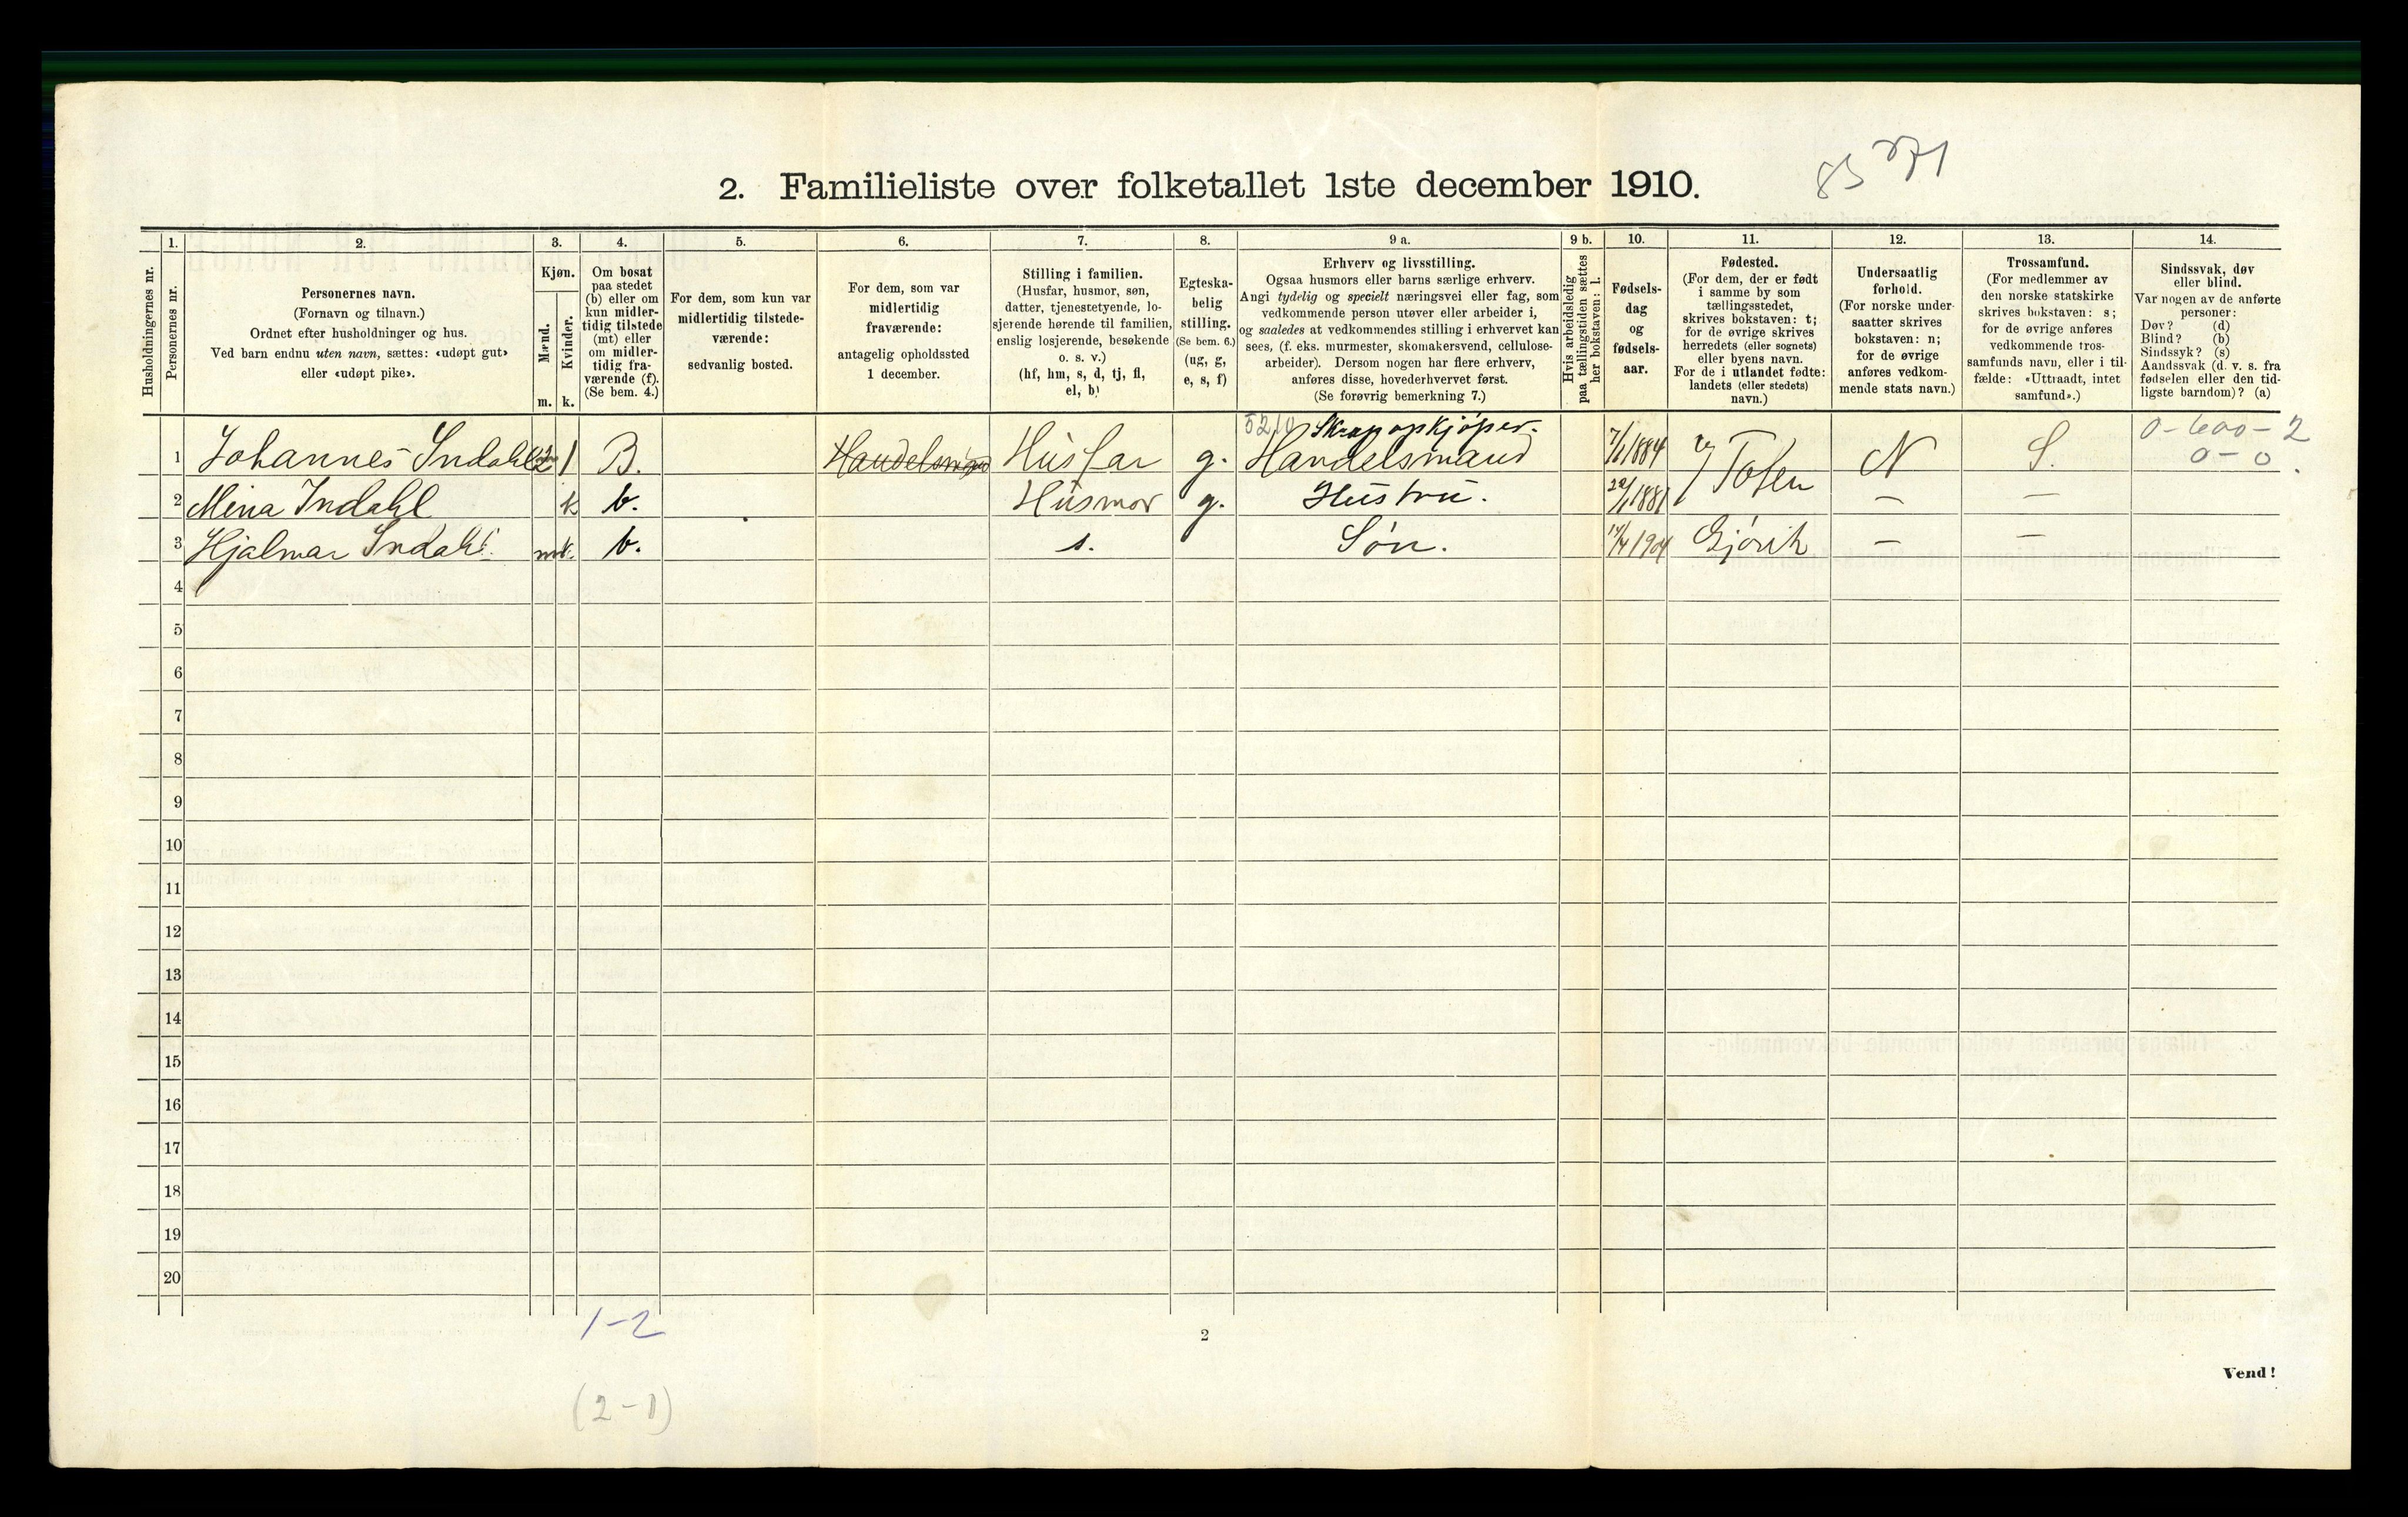 2. Familieliste over folketallet 1ste december 1910.
83 271
1. 2. 3. 4. 5. 6. 7. 8. 9 a. 9 b. 10. 11. 12. 13. 14.
Husholdningernes nr.
Personernes nr.
Personernes navn.
(Fornavn og tilnavn.)
Ordnet efter husholdninger og hus.
Ved barn endnu uten navn, sættes: «udøpt gut»
eller «udøpt pike».
Kjøn.
Mænd.
Kvinder.
m. k.
Om bosat
paa stedet
(b) eller om
kun midler-
tidig tilstede
(mt) eller
om midler-
tidig fra-
værende (f).
(Se bem. 4.)
For dem, som kun var
midlertidig tilstede-
værende:
sedvanlig bosted.
For dem, som var
midlertidig
fraværende:
antagelig opholdssted
1 december.
Stilling i familien.
(Husfar, husmor, søn,
datter, tjenestetyende, lo-
sjerende hørende til familien,
enslig losjerende, besøkende
o. s. v.)
(hf, hm, s, d, tj, fl,
el, b)
Egteska-
belig
stilling.
(Se bem. 6.)
(ug, g,
e, s, f)
Erhverv og livsstilling.
Ogsaa husmors eller barns særlige erhverv.
Angi tydelig og specielt næringsvei eller fag, som
vedkommende person utøver eller arbeider i,
og saaledes at vedkommendes stilling i erhvervet kan
sees, (f. eks. murmester, skomakersvend, cellulose-
arbeider). Dersom nogen har flere erhverv,
anføres disse, hovederhvervet først.
(Se forøvrig bemerkning 7.)
Hvis arbeidsledig
paa tællingstiden sættes
her bokstaven: l.
Fødsels-
dag
og
fødsels-
aar.
Fødested.
(For dem, der er født
i samme by som
tællingsstedet,
skrives bokstaven: t;
for de øvrige skrives
herredets (eller sognets)
eller byens navn.
For de i utlandet fødte:
landets (eller stedets)
navn.)
Undersaatlig
forhold.
(For norske under-
saatter skrives
bokstaven: n;
for de øvrige
anføres vedkom-
mende stats navn.)
Trossamfund.
(For medlemmer av
den norske statskirke
skrives bokstaven: s;
for de øvrige anføres
vedkommende tros-
samfunds navn, eller i til-
fælde: «Uttraadt, intet
samfund».)
Sindssvak, døv
eller blind.
Var nogen av de anførte
personer:
Døv? (d)
Blind? (b)
Sindssyk? (s)
Aandssvak (d. v. s. fra
fødselen eller den tid-
ligste barndom)? (a)
5210 Skrapopkjøper. 0-600-2
1 Johannes Indahl 2 1 B. Handelsmand Husfar g. Handelsmand 7/1 1884 Toten N S. 0-0
2 Mina Indahl k b. Husmor g. Hustru. 1881 — —
3 Hjalmar Indahl m k. b. s. Søn. 1904 Gjøvik — —
4
5
6
7
8
9
10
11
12
13
14
15
16
17
18
19
20
1-2
2
Vend!
(2-1)